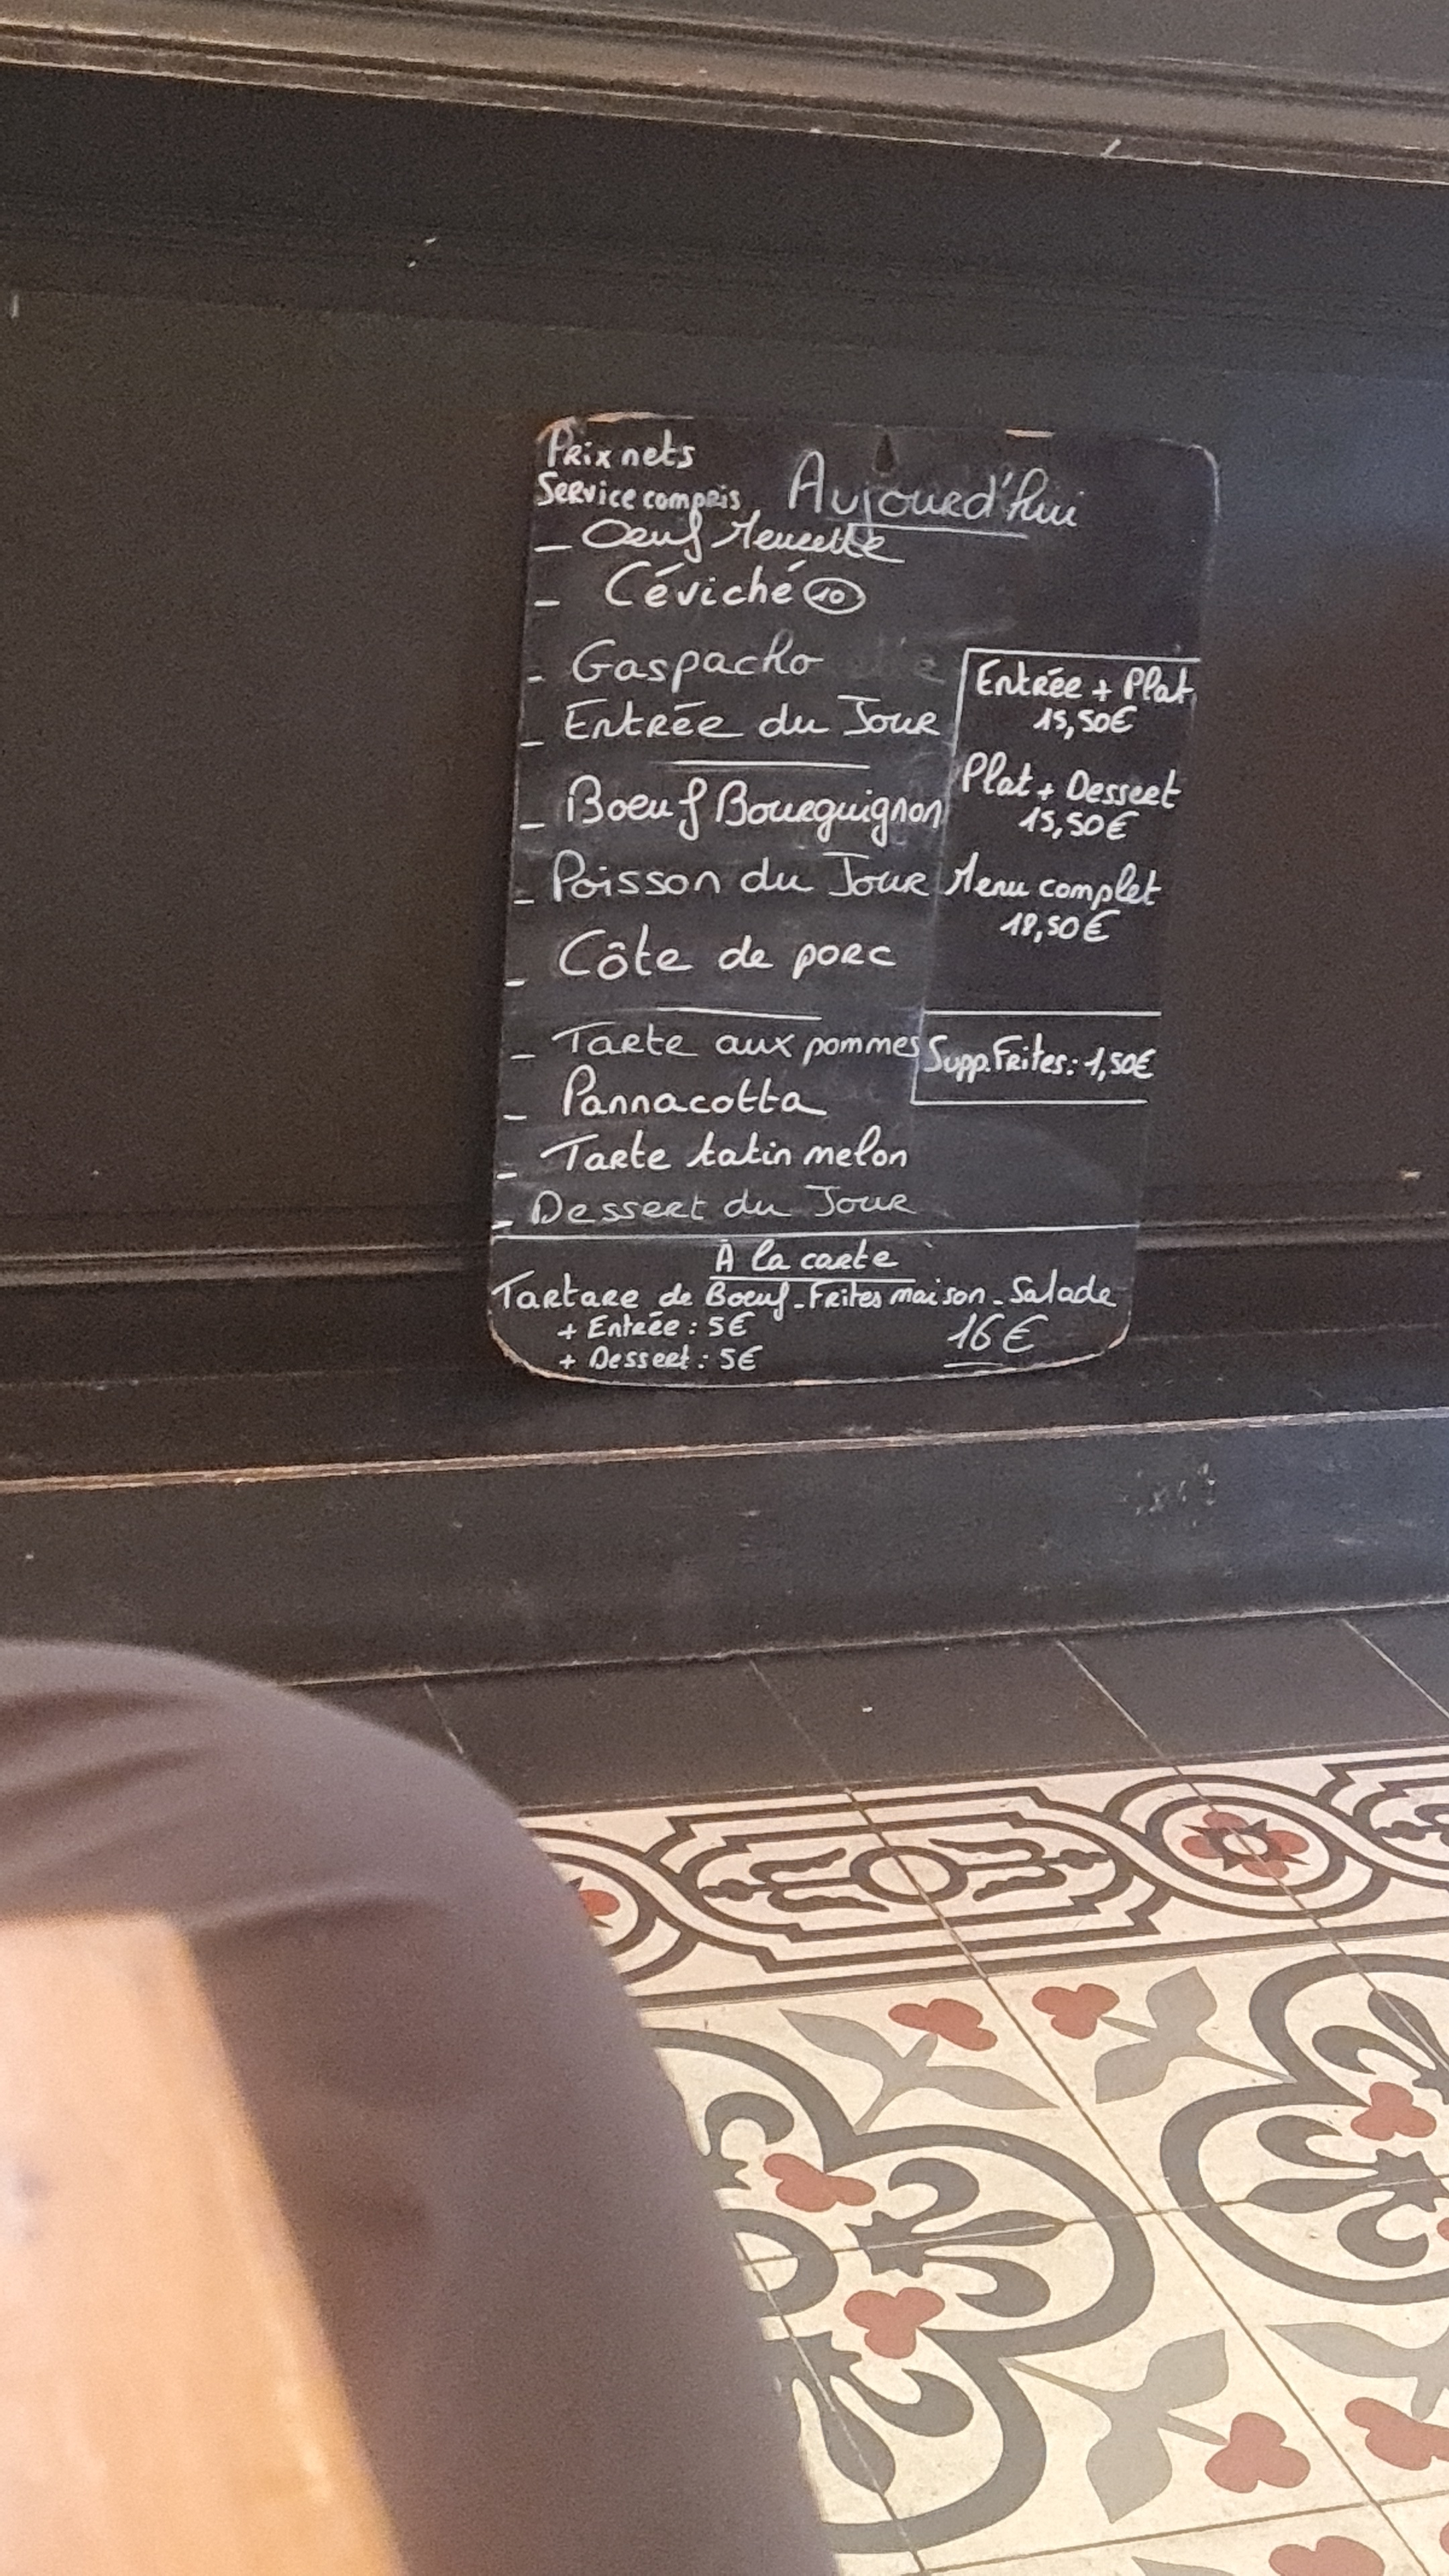 Prix nets
Service compris
Aujourd'hui
- Oeuf Meurette
- Céviché 10
- Gaspacho
- Entrée du Jour
- Boeuf Bourguignon
- Poisson du Jour
- Côte de porc
- Tarte aux pommes
- Pannacotta
- Tarte tatin melon
- Dessert du Jour
Entrée + Plat
15,50€
Plat + Dessert
15,50€
Menu complet
18,50€
Supp.Frites: 1,50€
À la carte
Tartare de Boeuf - Frites maison - Salade
+ Entrée : 5€
+ Dessert : 5€
16€